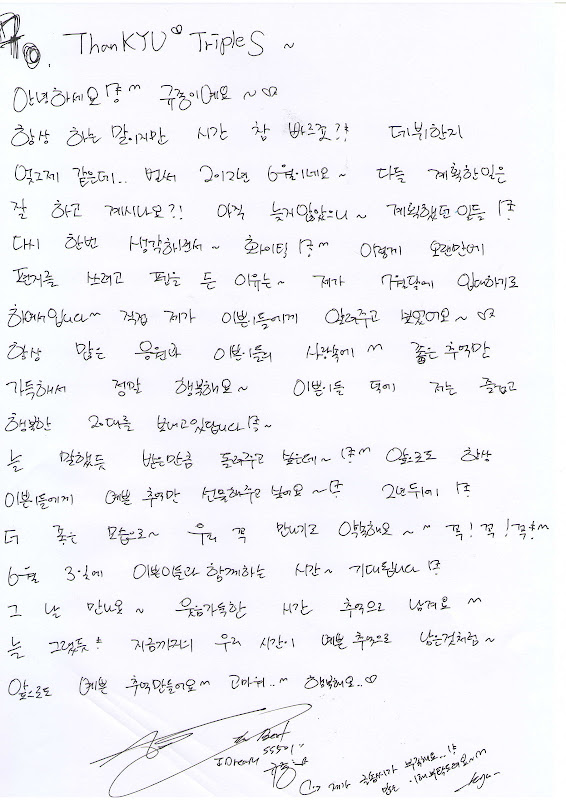 To. ThanKYU♡ TripleS ~
안녕하세요!^^ 규종이에요 ~♡
항상 하는 말이지만 시간 참 빠르죠?! 데뷔한지
엊그제 같은데.. 벌써 2012년 6월이네요 ~ 다들 계획한일은
잘 하고 계시나요?! 아직 늦지않았으니~ 계획했던 일들
다시 한번 생각하면서~ 화이팅 이렇게 오랜만에
편지를 쓰려고 펜을 든 이유는~ 제가 7월달에 입대하기로
하여서입니다^^ 직접 제가 이쁜이들에게 알려주고 싶었어요~♡
항상 많은 응원과 이쁜이들의 사랑속에^^ 좋은 추억만
가득해서 정말 행복해요~ 이쁜이들 덕에 저는 즐겁고
행복한 20대를 보내고있답니다 ~
늘 말했듯 받은만큼 돌려주고 싶은데~ 앞으로도 항상
이쁜이들에게 예쁜 추억만 선물해주고 싶어요~ 2년뒤에
더 좋은 모습으로~ 우리 꼭 만나기로 약속해요~^^ 꼭! 꼭! 꼭!^^
6월 3일에 이쁜이들과 함께하는 시간~ 기대됩니다
그 날 만나요~ 웃음가득한 시간 추억으로 남겨요^^
늘 그랬듯 지금까지의 우리 시간이 예쁜 추억으로 남은것처럼~
앞으로도 예쁜 추억만들어요^^ 고마워..^^ 행복해요..♡
SS501
규종
제가 글솜씨가 부족해요..
kyu-